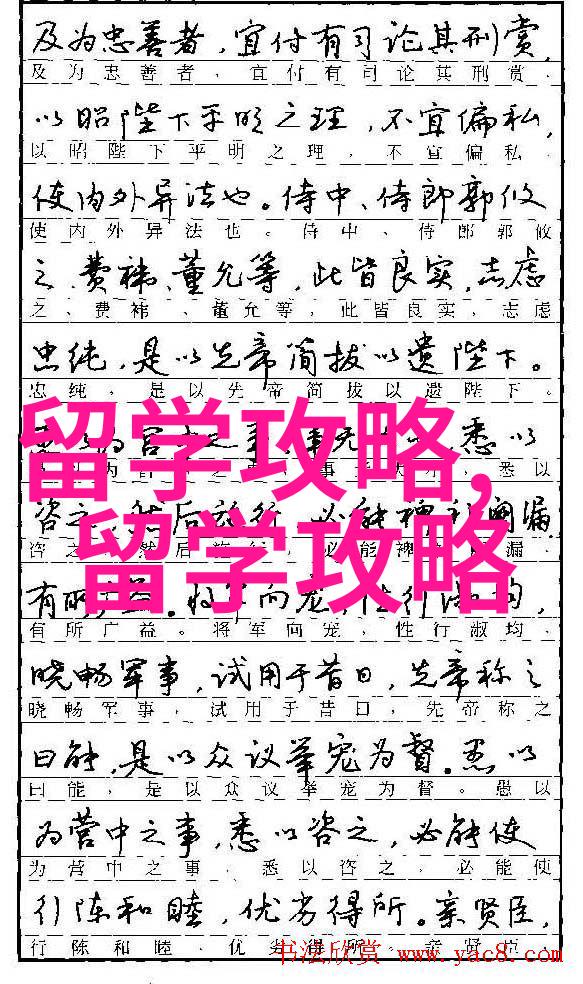 及为忠善者，宜付有司论其刑赏，
及为忠善者，宜付有司论其刑赏，
以昭陛下平明之理，不宜偏私，
以昭陛下平明之理，不宜偏私，
使内外异法也。侍中、侍郎郭攸
使内外异法也。侍中、侍郎郭攸
之、费祎、董允等，此皆良实，志虑
之、费祎、董允等，此皆良实，志虑
忠纯，是以先帝简拔以遗陛下。
忠纯，是以先帝简拔以遗陛下。
留学攻略,
为宫之事，事无悉以
以为悉以
咨之，然后施行，必能裨补阙漏，
咨之，然后必能裨漏，
留学攻略
有所广益。将军向宠，性行淑均，
有所广益。将军向宠，性行淑均，
晓畅军事，试用于昔日，先帝称之
晓畅军事，试用于昔日，先帝称之
曰能，是以众议举宠为督。愚以
曰能，是以众议举宠为督。愚以
为营中之事，悉以咨之，必能使
为营中之事，悉以咨之，必能使
行阵和睦，优劣得所。亲贤臣，
行阵和睦，优劣得所。亲贤臣，
书法欣赏 www.yac8.com